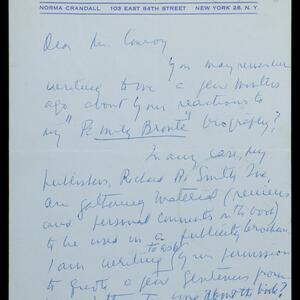 NORMA CRANDALL 103 EAST 84TH STREET NEW YORK 28, N. Y.
Dear Mr. Conroy
You may remember
writing to me a few months
ago about your reactions to
my "Emily Brontë" biography?
In any case, my
publishers, Richard R. Smith Inc,
are gathering material (reviews
and personal comments on the book)
to be used in a publicity brochure.
I am writing to ask your permission
to quote a few sentences from
about the book?